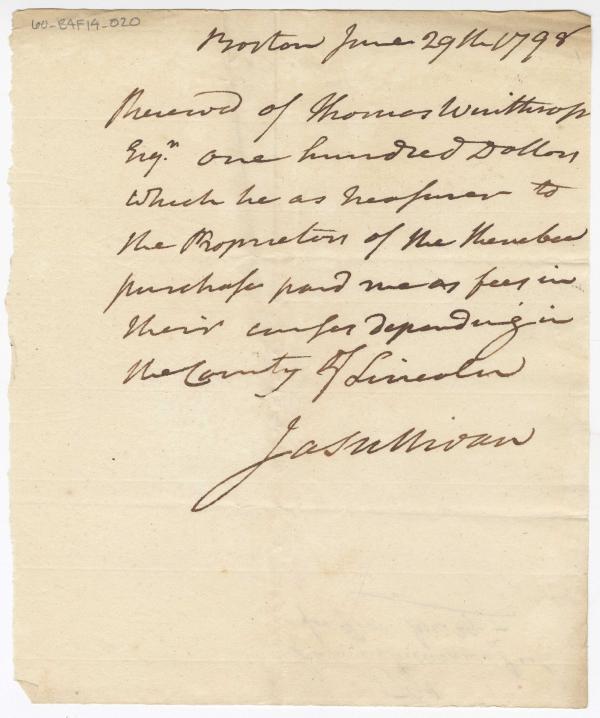 60-E4F14-020
Boston June 29th 1798
Received of Thomas Winthrop
Esqr. one hundred Dollars
which he as treasurer to
the Proprietors of the Kenebec
purchase paid me as fees in
their causes depending in
the County of Lincoln
Ja Sullivan